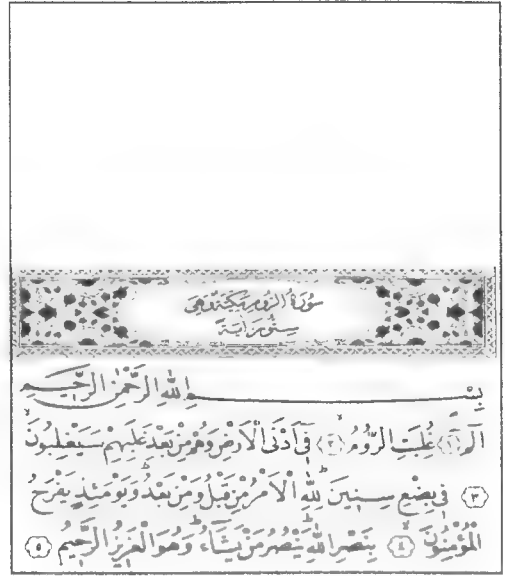 سُورَةُ الرُّومِ مَكِّيَّةٌ وَهِيَ
سِتُّونَ اٰيَةً
بِسْمِ اللّٰهِ الرَّحْمٰنِ الرَّحِيمِ
الٓمٓ ﴿١﴾ غُلِبَتِ الرُّومُۙ ﴿٢﴾ فِٓي اَدْنَى الْاَرْضِ وَهُمْ مِنْ بَعْدِ غَلَبِهِمْ سَيَغْلِبُونَۙ
﴿٣﴾ فِي بِضْعِ سِنِينَۜ لِلّٰهِ الْاَمْرُ مِنْ قَبْلُ وَمِنْ بَعْدُۜ وَيَوْمَئِذٍ يَفْرَحُ
الْمُؤْمِنُونَۙ ﴿٤﴾ بِنَصْرِ اللّٰهِۜ يَنْصُرُ مَنْ يَشَٓاءُۜ وَهُوَ الْعَزِيزُ الرَّحِيمُ ﴿٥﴾